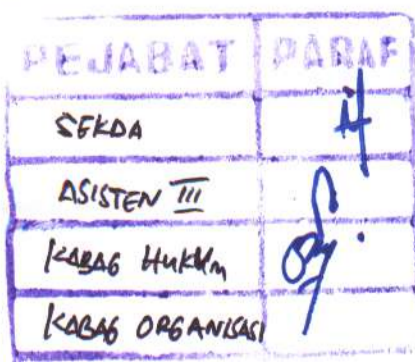 PEJABAT PARAF
SEKDA
ASISTEN III
KABAG HUKUM
KABAG ORGANISASI